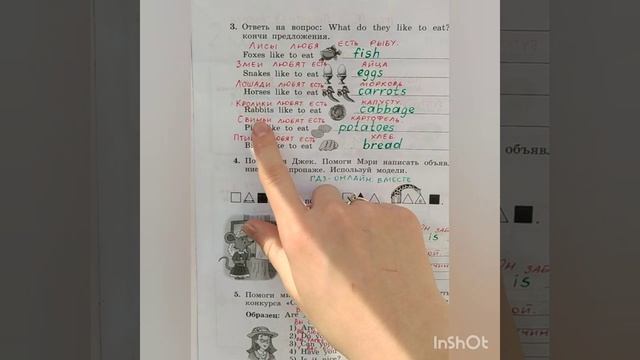 3. Ответь на вопрос: What do they like to eat?
кончи предложения.
ЛИСЫ ЛЮБЯ ЕСТЬ РЫБУ.
Foxes like to eat fish
ЗМЕИ ЛЮБЯТ ЕСТЬ ЯЙЦА
Snakes like to eat eggs
ЛОШАДИ ЛЮБЯТ ЕСТЬ МОРКОВЬ
Horses like to eat carrots
КРОЛИКИ ЛЮБЯТ ЕСТЬ КАПУСТУ.
Rabbits like to eat cabbage
СВИНЬИ ЛЮБЯТ ЕСТЬ КАРТОФЕЛЬ
like to eat potatoes
ЛЮБЯТ ЕСТЬ ХЛЕБ
like to eat bread
4. Джек. Помоги Мэри написать объяв
пропаже. Используй модели.
ГДЗ-ОНЛАЙН. ВМЕСТЕ
объявл
ОН ЗАБ
is
is
5. Помоги
конкурса
Образец: Are
1) Are
2) Do
3) Can
4) Have
InShOt